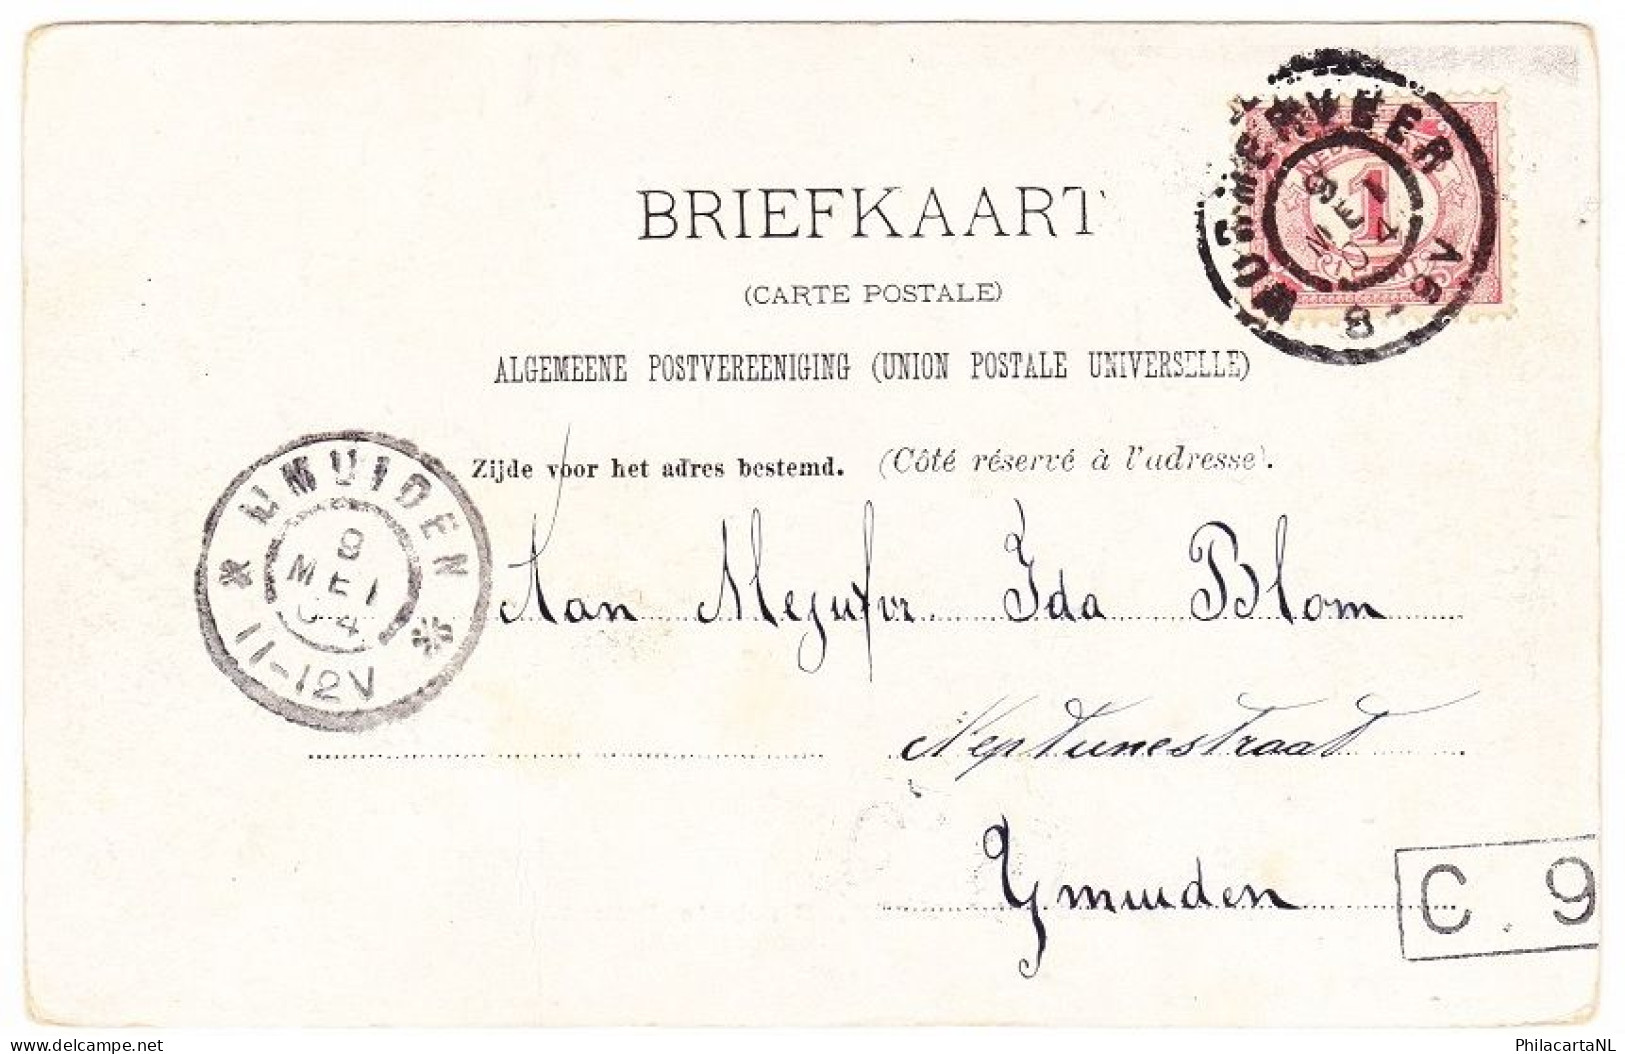 BRIEFKAART
(CARTE POSTALE)
ALGEMEENE POSTVEREENIGING (UNION POSTALE UNIVERSELLE)
Zijde voor het adres bestemd. (Côté réservé à l'adresse).
1
9
MEI
04
8-9V
IJMUIDEN
9
MEI
04
11-12V
Aan Mejufvr. Ida Blom
Neptunestraat
Ymuiden
C. 9
PhilacartaNL